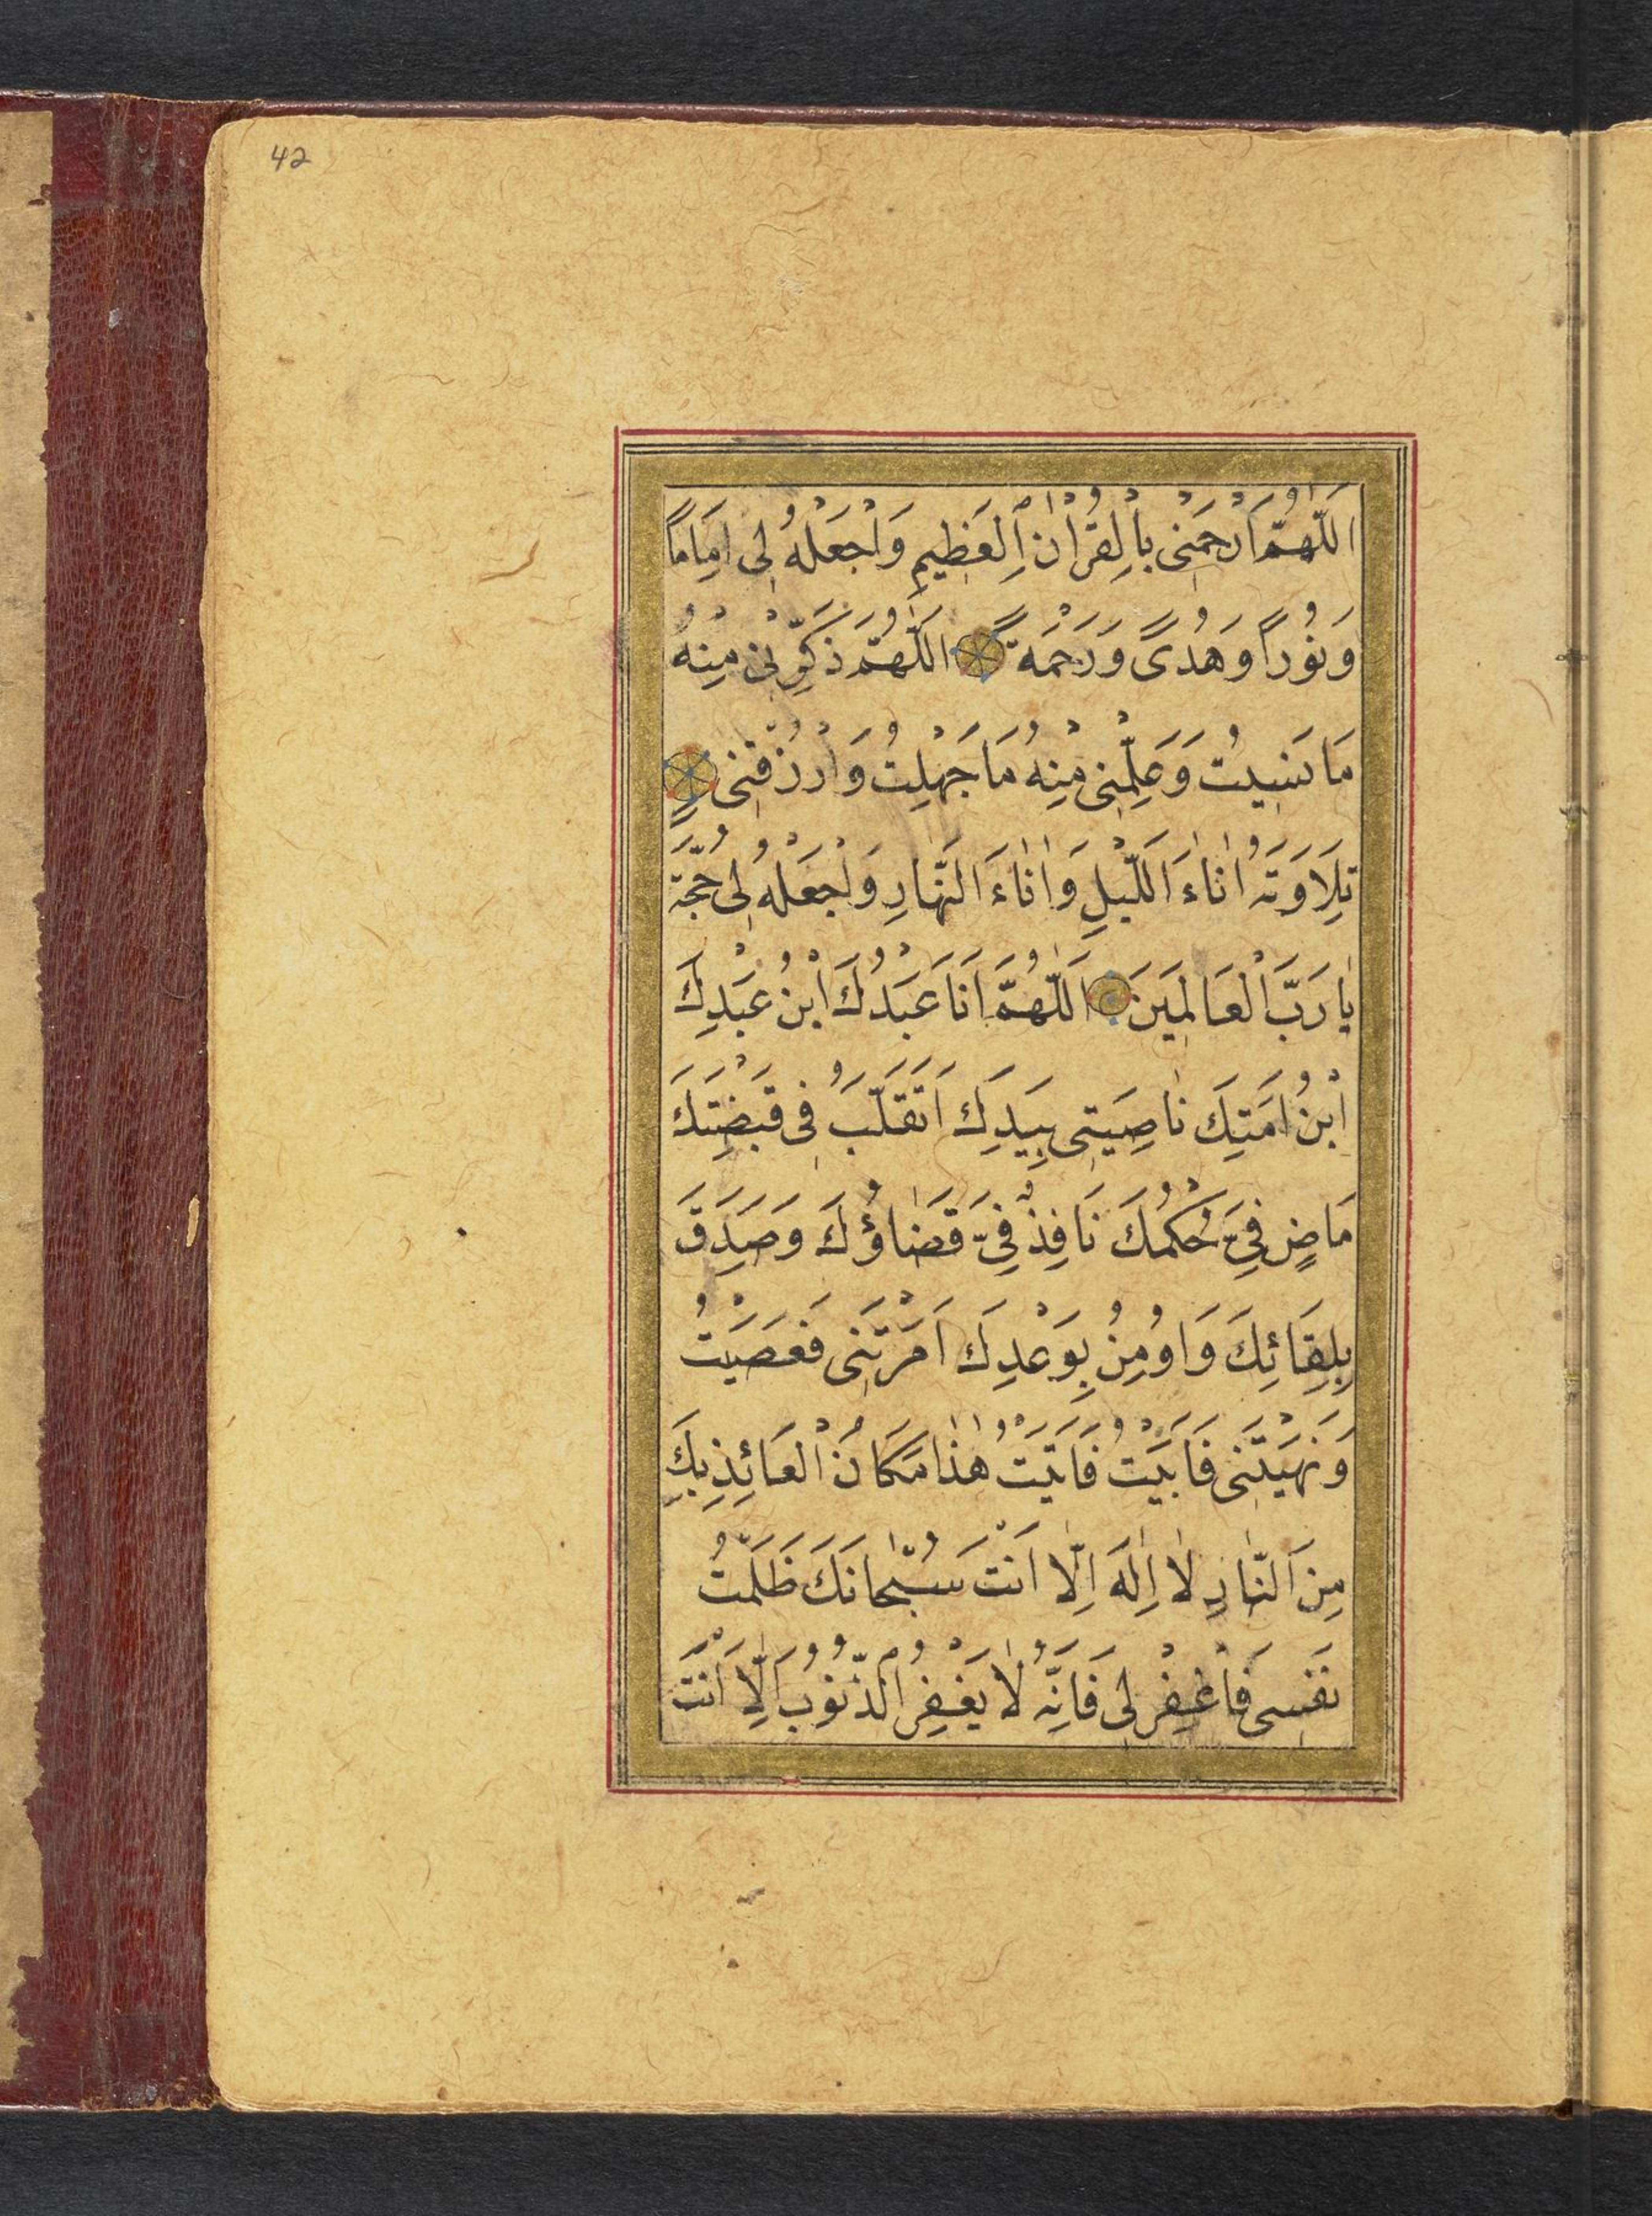 42
اَللّٰهُمَّ ارْحَمْنِى بِالْقُرْاٰنِ الْعَظِيمِ وَاجْعَلْهُ لِى اِمَامًا
وَنُورًا وَهُدًى وَرَحْمَةً اَللّٰهُمَّ ذَكِّرْنِى مِنْهُ
مَا نَسِيتُ وَعَلِّمْنِى مِنْهُ مَا جَهِلْتُ وَارْزُقْنِى
تِلَاوَتَهُ اٰنَاءَ اللَّيْلِ وَاٰنَاءَ النَّهَارِ وَاجْعَلْهُ لِى حُجَّةً
يَا رَبَّ الْعَالَمِينَ اَللّٰهُمَّ اَنَا عَبْدُكَ ابْنُ عَبْدِكَ
ابْنُ اَمَتِكَ نَاصِيَتِى بِيَدِكَ اَتَقَلَّبُ فِى قَبْضَتِكَ
مَاضٍ فِىَّ حُكْمُكَ نَافِذٌ فِىَّ قَضَاؤُكَ وَصَدَقَ
بِلِقَائِكَ وَاُومِنُ بِوَعْدِكَ اَمَرْتَنِى فَعَصَيْتُ
وَنَهَيْتَنِى فَاَبَيْتُ فَاَتَيْتُ هٰذَا مَكَانُ الْعَائِذِ بِكَ
مِنَ النَّارِ لَا اِلٰهَ اِلَّا اَنْتَ سُبْحَانَكَ ظَلَمْتُ
نَفْسِى فَاغْفِرْ لِى فَاِنَّهُ لَا يَغْفِرُ الذُّنُوبَ اِلَّا اَنْتَ